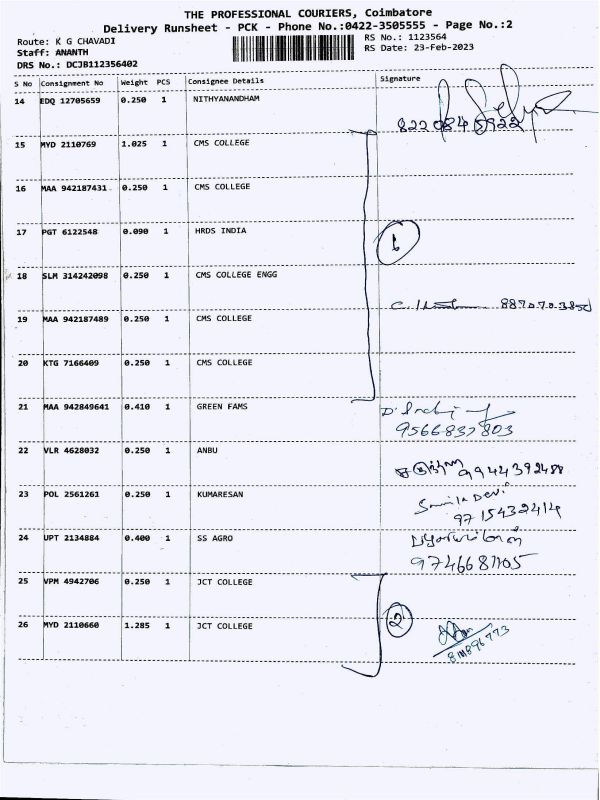 THE PROFESSIONAL COURIERS, Coimbatore
Delivery Runsheet - PCK - Phone No.:0422-3505555 - Page No.:2
Route: K G CHAVADI
RS No.: 1123564
Staff: ANANTH
RS Date: 23-Feb-2023
DRS No.: DCJB112356402
S No Consignment No Weight PCS Consignee Details Signature
14 EDQ 12705659 0.250 1 NITHYANANDHAM
15 MYD 2110769 1.025 1 CMS COLLEGE
16 MAA 942187431 0.250 1 CMS COLLEGE
17 PGT 6122548 0.090 1 HRDS INDIA
18 SLM 314242098 0.250 1 CMS COLLEGE ENGG
19 MAA 942187489 0.250 1 CMS COLLEGE
20 KTG 7166409 0.250 1 CMS COLLEGE
21 MAA 942849641 0.410 1 GREEN FAMS
9566837803
22 VLR 4628032 0.250 1 ANBU
9944392488
23 POL 2561261 0.250 1 KUMARESAN
9715432414
24 UPT 2134884 0.400 1 SS AGRO
25 VPM 4942706 0.250 1 JCT COLLEGE
26 MYD 2110660 1.285 1 JCT COLLEGE
2